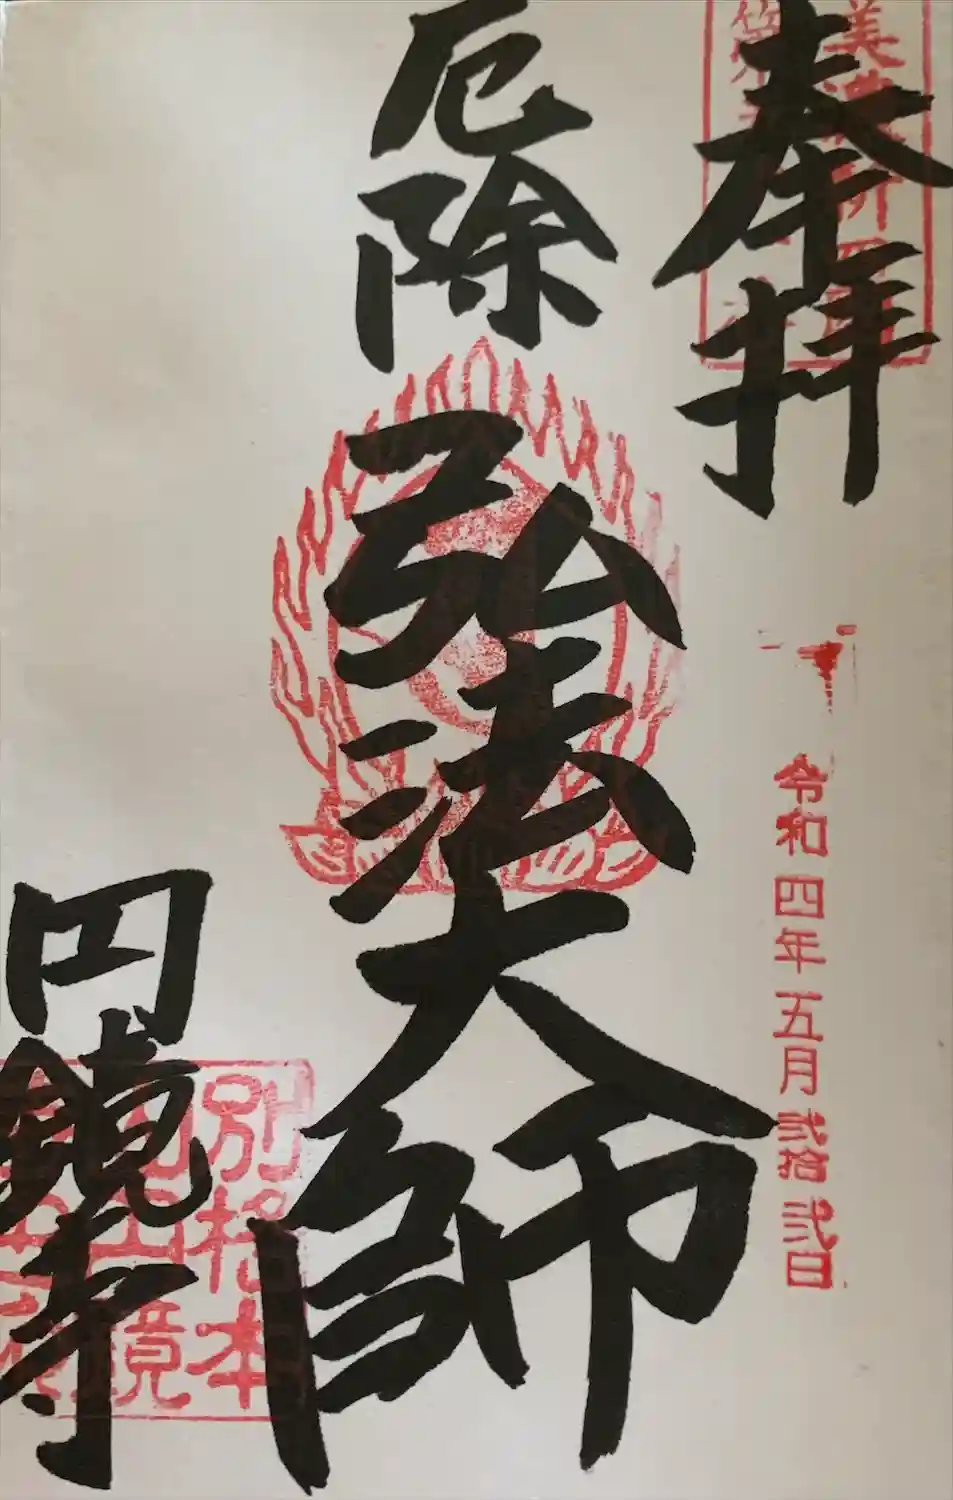 奉拝
令和四年五月弐拾弐日
厄除 弘法大師
円鏡寺
別格本